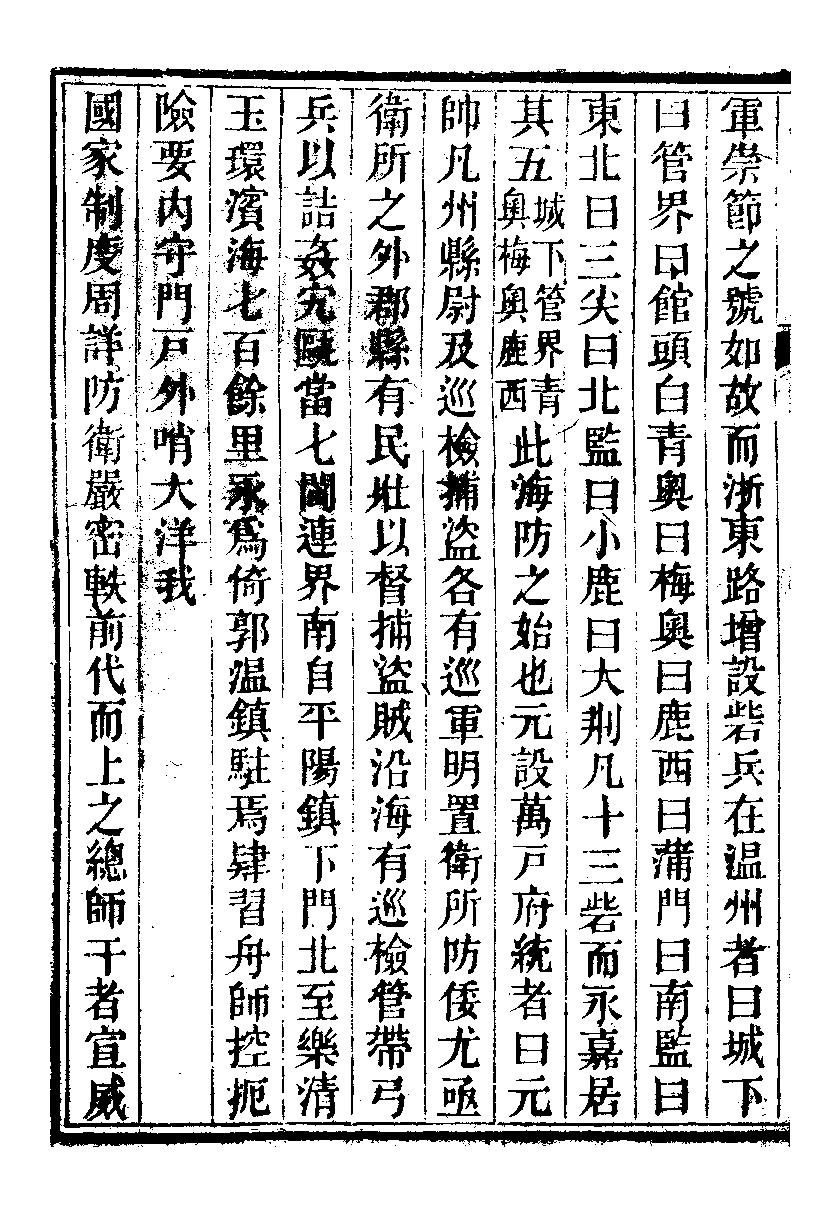 軍崇節之號如故而浙東路增設砦兵在温州者曰城下
曰管界曰館頭曰青奧曰梅奧曰鹿西曰蒲門曰南監曰
東北曰三尖曰北監曰小鹿曰大荆凡十三砦而永嘉居
其五城下管界青奧梅奧鹿西此海防之始也元設萬戸府統者曰元
帥凡州縣尉及巡檢捕盜各有巡軍明置衛所防倭尤亟
衛所之外郡縣有民壯以督捕盜賊沿海有巡檢管帶弓
兵以詰姦宄甌當七閩連界南自平陽鎮下門北至樂清
玉環濱海七百餘里永爲倚郭温鎮駐焉肄習舟師控扼
險要内守門戸外哨大洋我
國家制度周詳防衛嚴密軼前代而上之總師干者宣威